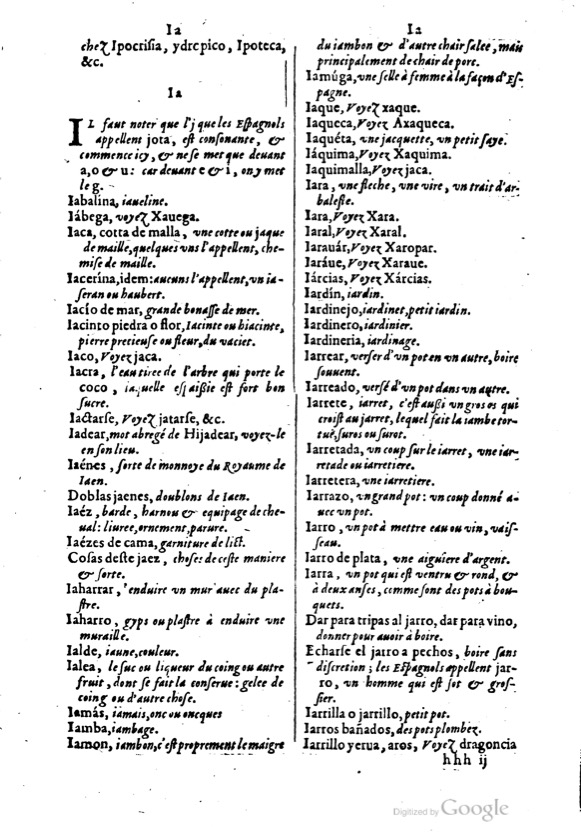 Ia
chez Ipocrisia, ydropico, Ipoteca,
&c.
Ia
IL faut noter que l'j que les Espagnols
appellent jota, est consonante, &
commence icy, & ne se met que deuant
a, o & u: car deuant e & i, on y met
le g.
Iabalina, iaueline.
Iábega, voyez Xauega.
Iaca, cotta de malla, vne cotte ou jaque
de maille, quelques vns l'appellent, che-
mise de maille.
Iacerína, idem: aucuns l'appellent, vn ia-
seran ou haubert.
Iacío de mar, grande bonasse de mer.
Iacinto piedra o flor, Iacinte ou hiacinte,
pierre precieuse ou fleur, du vaciet.
Iaco, Voyez jaca.
Iacra, l'eau tiree de l'arbre qui porte le
coco, laquelle espaissie est fort bon
sucre.
Iactarse, Voyez jatarse, &c.
Iadear, mot abregé de Hijadear, voyez-le
en son lieu.
Iaénes, sorte de monnoye du Royaume de
Iaen.
Doblas jaenes, doublons de Iaen.
Iaéz, barde, harnou & equipage de che-
ual: liuree, ornement, parure.
Iaézes de cama, garniture de lict.
Cosas deste jaez, choses de ceste maniere
& sorte.
Iaharrar, enduire vn mur auec du pla-
stre.
Iaharro, gyps ou plastre à enduire vne
muraille.
Ialde, iaune, couleur.
Ialea, le suc ou liqueur du coing ou autre
fruit, dont se fait la conserue: gelee de
coing ou d'autre chose.
Iamás, iamais, onc ou oncques
Iamba, iambage.
Iamon, iambon, c'est proprement le maigre
Ia
du iambon & d'autre chair salee, mais
principalement de chair de porc.
Iamúga, vne selle à femme à la façon d'Es-
pagne.
Iaque, Voyez xaque.
Iaqueca, Voyez Axaqueca.
Iaquéta, vne jacquette, vn petit saye.
Iáquima, Voyez Xaquima.
Iaquimalla, Voyez jaca.
Iara, vne fleche, vne vire, vn trait d'ar-
baleste.
Iara, Voyez Xara.
Iaral, Voyez Xaral.
Iarauár, Voyez Xaropar.
Iaráue, Voyez Xaraue.
Iárcias, Voyez Xárcias.
Iardín, iardin.
Iardinejo, iardinet, petit iardin.
Iardinero, iardinier.
Iardineria, iardinage.
Iarrear, verser d'vn pot en vn autre, boire
souuent.
Iarreado, versé d'vn pot dans vn autre.
Iarrete, iarret, c'est aussi vn gros os qui
croist au jarret, lequel fait la iambe tor-
tuë, suros ou surot.
Iarretada, vn coup sur le iarret, vne iar-
retade ou iarretiere.
Iarretera, vne iarretiere.
Iarrazo, vn grand pot: vn coup donné a-
uec vn pot.
Iarro, vn pot à mettre eau ou vin, vais-
seau.
Iarro de plata, vne aiguiere d'argent.
Iarra, vn pot qui est ventru & rond, &
à deux anses, comme sont des pots à bou-
quets.
Dar para tripas al jarro, dar para vino,
donner pour auoir à boire.
Echarse el jarro a pechos, boire sans
discretion; les Espagnols appellent jar-
ro, vn homme qui est sot & gros-
sier.
Iarrilla o jarrillo, petit pot.
Iarros bañados, des pots plombez.
Iarrillo yerua, aros, Voyez dragoncia
hhh ij
Digitized by Google